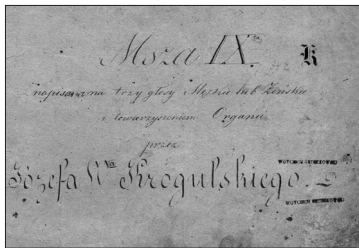 Msza IX. K
napisana na trzy głosy Męzkie lub Żeńskie
z towarzyszeniem Organu
przez
Józefa Krogulskiego.
WOJCIECH
WOJCIECH